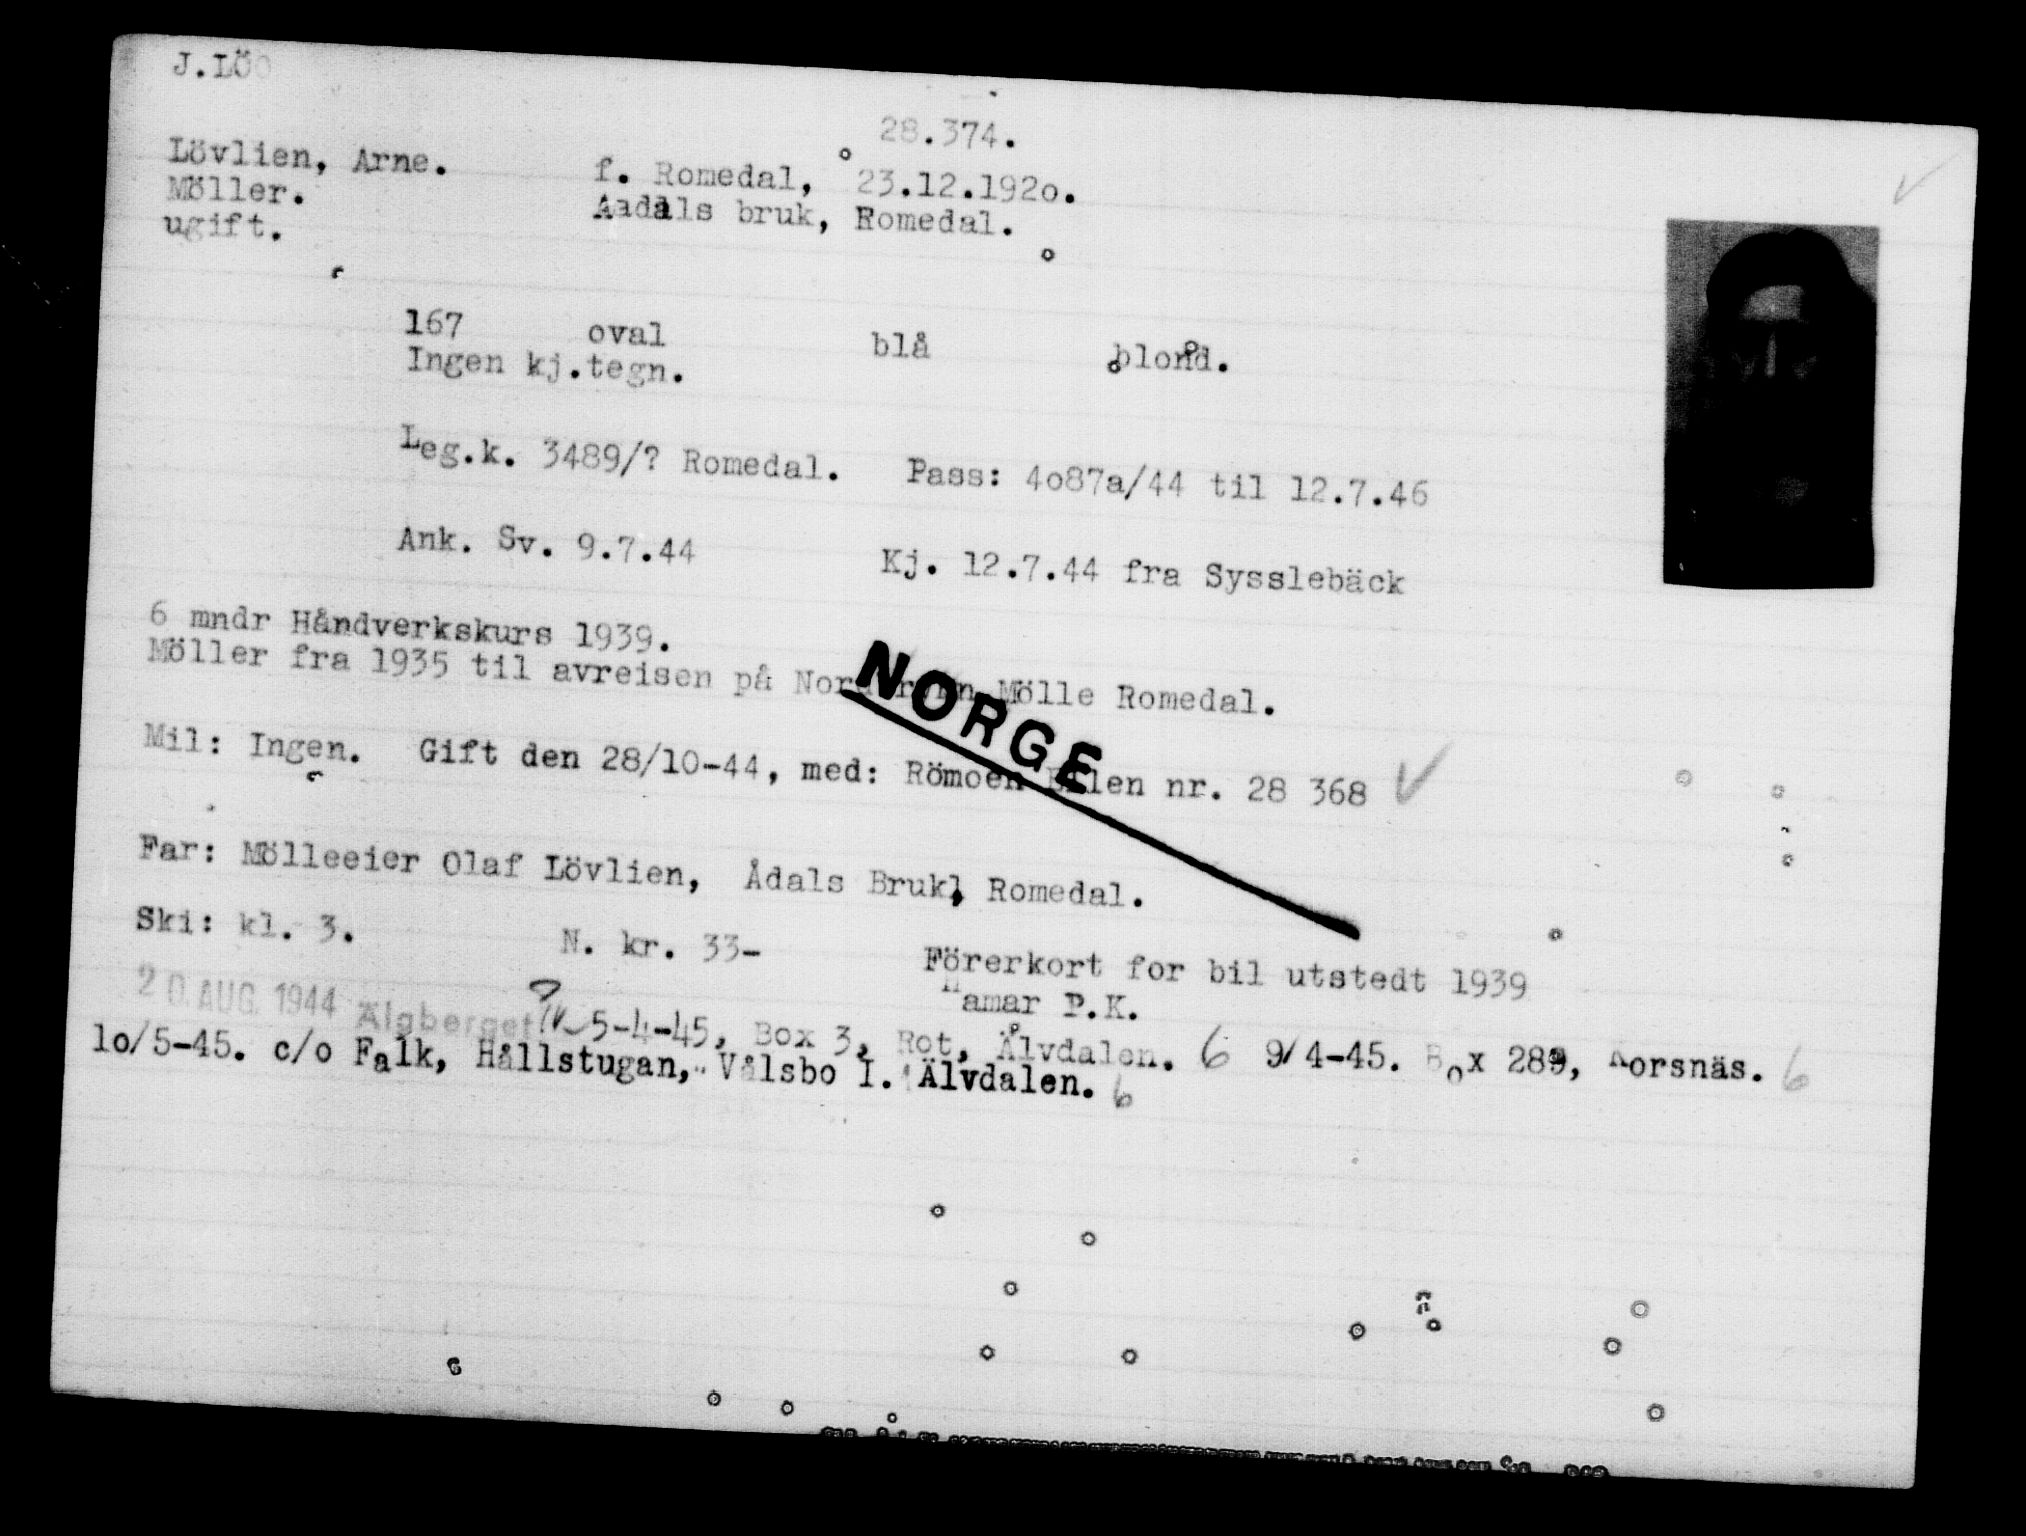 J.LÖO
28.374.
Lövlien, Arne. f. Romedal, 23.12.192o.
Möller. Aadals bruk, Romedal.
ugift.
167 oval blå blond.
Ingen kj.tegn.
Leg.k. 3489/? Romedal. Pass: 4o87a/44 til 12.7.46
Ank. Sv. 9.7.44 Kj. 12.7.44 fra Sysslebäck
6 mndr Håndverkskurs 1939.
Möller fra 1935 til avreisen på Mölle Romedal.
NORGE
Mil: Ingen. Gift den 28/10-44, med: Römoen Ellen nr. 28 368
Far: Mölleeier Olaf Lövlien, Ådals Bruk, Romedal.
Ski: kl. 3. N. kr. 33- Förerkort for bil utstedt 1939
Hamar P.K.
20. AUG. 1944 Älgberget 5-4-45, Box 3, Rot, Älvdalen. 6 9/4-45. Box 289, Korsnäs. 6
lo/5-45. c/o Falk, Hållstugan, Våsbo I. Älvdalen. 6